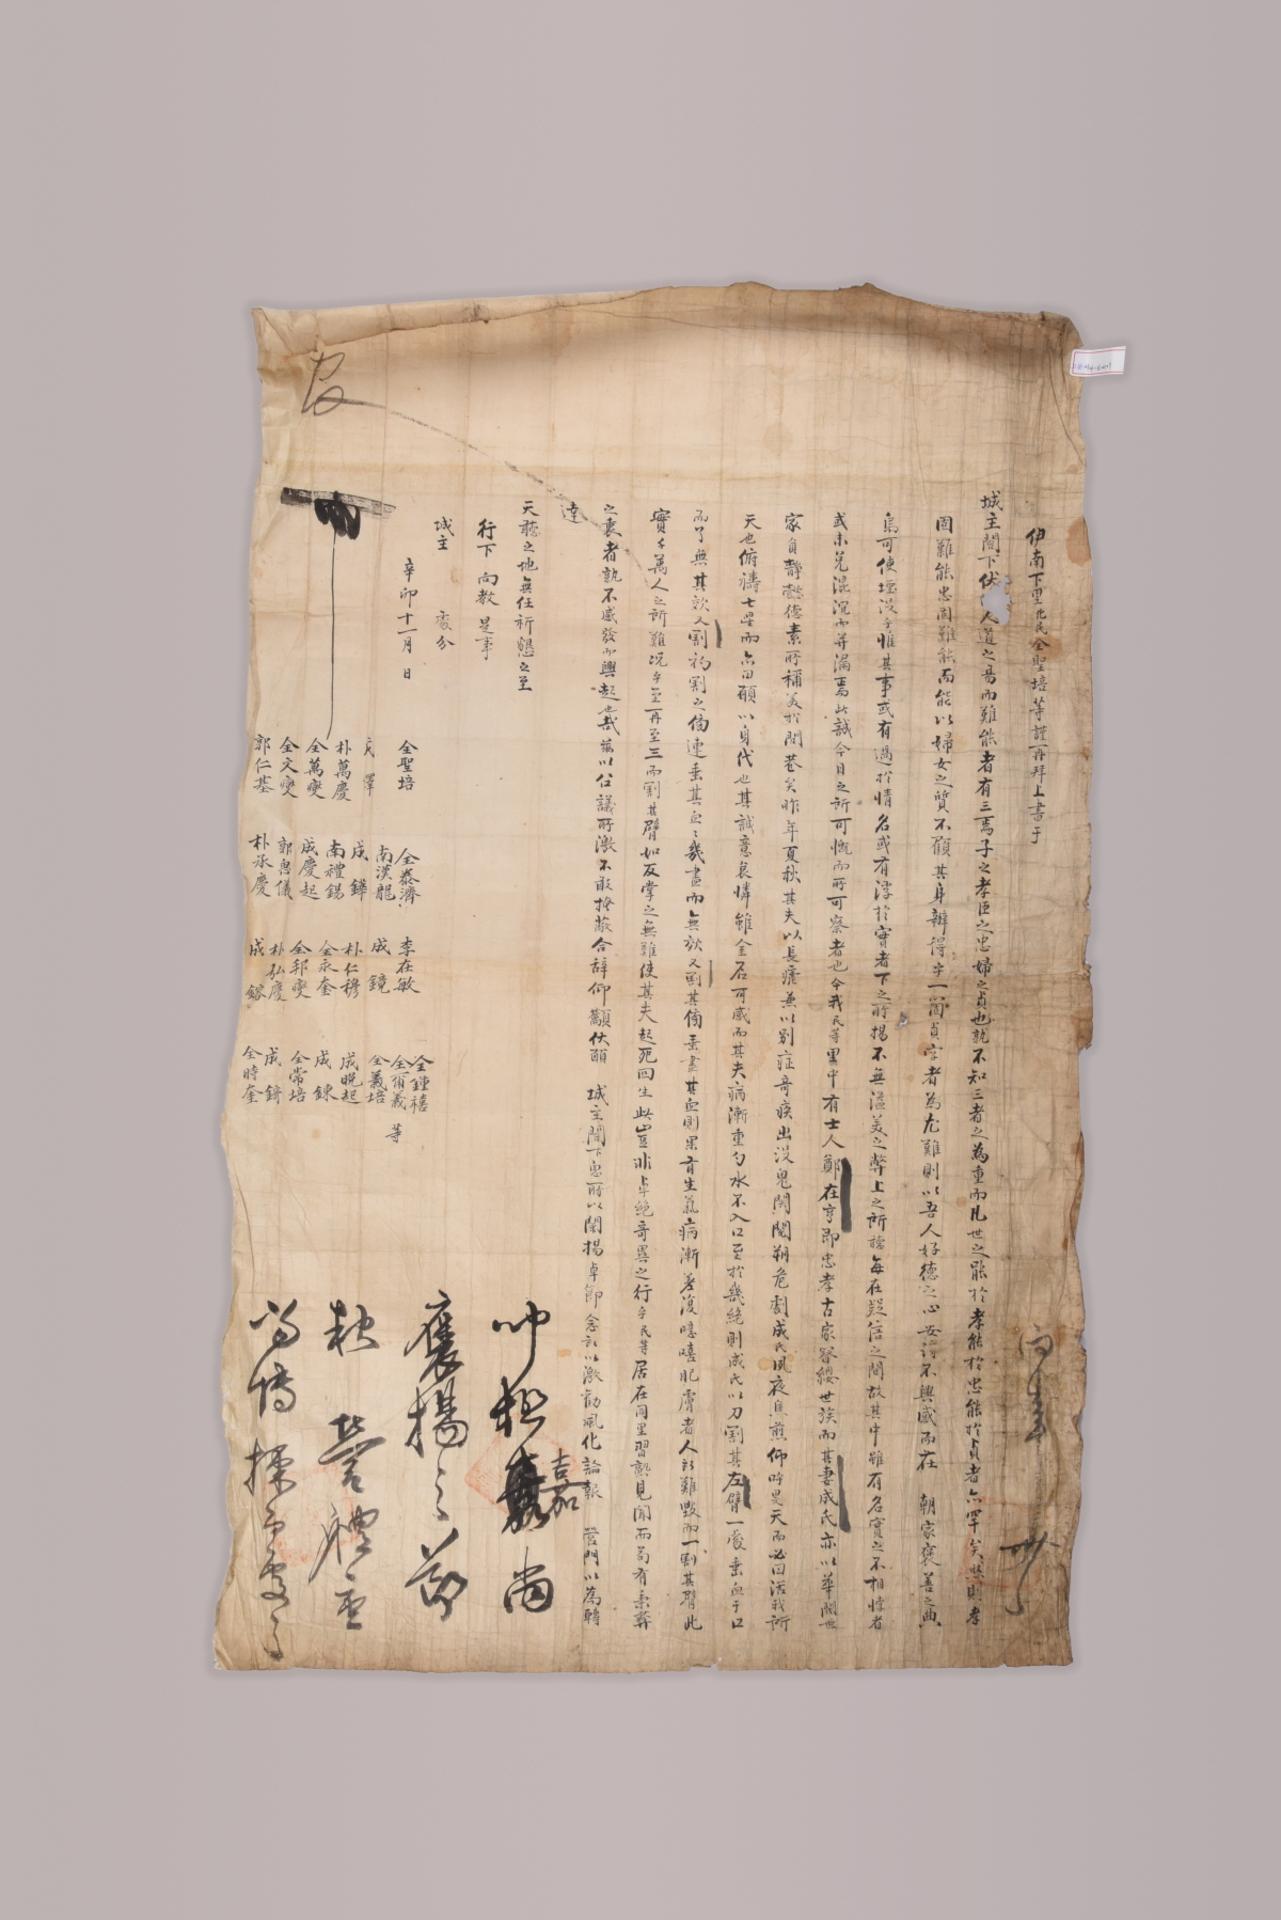 伊南下里化民全聖培等謹再拜上書于
城主閤下伏 人道之易而難能者有三焉子之孝臣之忠婦之貞也孰不知三者之為重而凡世之能於孝能於忠能於貞者亦罕矣然則孝
固難能忠固難能而能以婦女之質不顧其身辦得出一箇貞字者為尤難則以吾人好德之心安得不興感而在 朝家褒善之典
烏可使堙沒乎惟其事或有過於情名或有浮於實者下之所揚不無溢美之弊上之所 每在疑信之間故其中雖有名實之不相悖者
或未免混淪而并漏焉此誠今日之所可慨而所可察者也今我民等里中有士人鄭在亨即忠孝古家簪纓世族而其妻成氏亦以華閥世
家貞靜懿德素所稱美於閭巷矣昨年夏秋其夫以長瘧兼以別症奇疾出沒鬼關闖朔危劇成氏夙夜焦煎仰呼旻天而必曰活我所
天也俯禱七星而亦曰願以身代也其誠意哀憐雖金石可感而其夫病漸重勺水不入口至於幾絶則成氏以刀割其左臂一臠垂血于口
而了無其效又割初割之傍連垂其血血幾盡而無效又割其傍垂盡其血則果有生氣病漸差復噫嘻肥膚者人所難毁而一割其臂此
實千萬人之所難況乎至再至三而割其臂如反掌之無難使其夫起死回生此豈非卓絶奇異之行乎民等居在同里習熟見聞而苟有秉彛
之衷者孰不感發而興起也哉茲以公議所激不敢掩蔽合辭仰籲伏願 城主閤下 所以闡揚卓節念所以激勸風化論報 營門以為轉
達
天聽之地無任祈懇之至
行下向教是事
城主 處分
辛卯十一月 日
全聖培 全泰濟 李在敏 全鍾禧
 澤 南漢龍 成鏡 全 義 等
朴萬慶 成鏵 朴仁穆 全義培
全萬燮 南禮錫 全永奎 成晩起
全文燮 成慶起 全邦燮 成鍊
郭仁基 郭 儀 朴弘慶 全常培
朴承慶 成鎔 成錡
全時奎
嘉尚
褒揚之節
營體